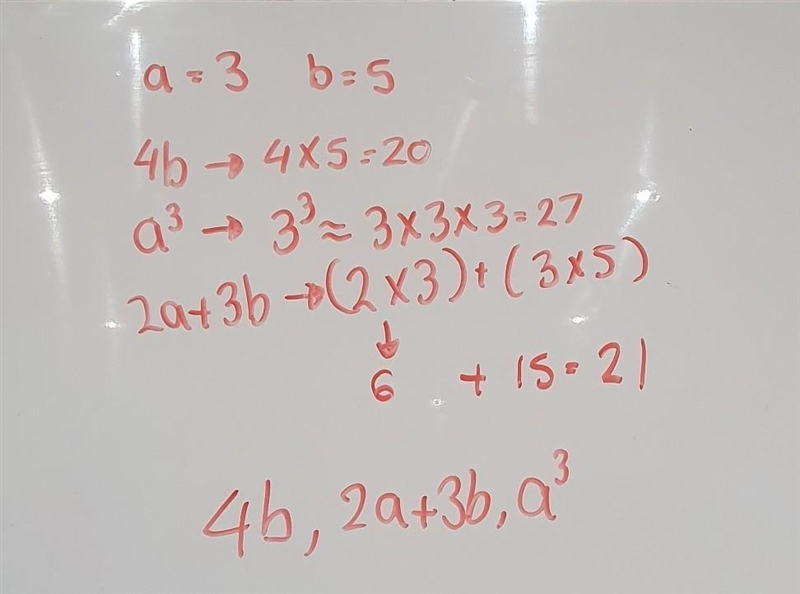 a = 3 b = 5
4b → 4 × 5 = 20
a³ → 3³ ≈ 3 × 3 × 3 = 27
2a+3b → (2 × 3) + (3 × 5)
↓
6 + 15 = 21
4b, 2a+3b, a³